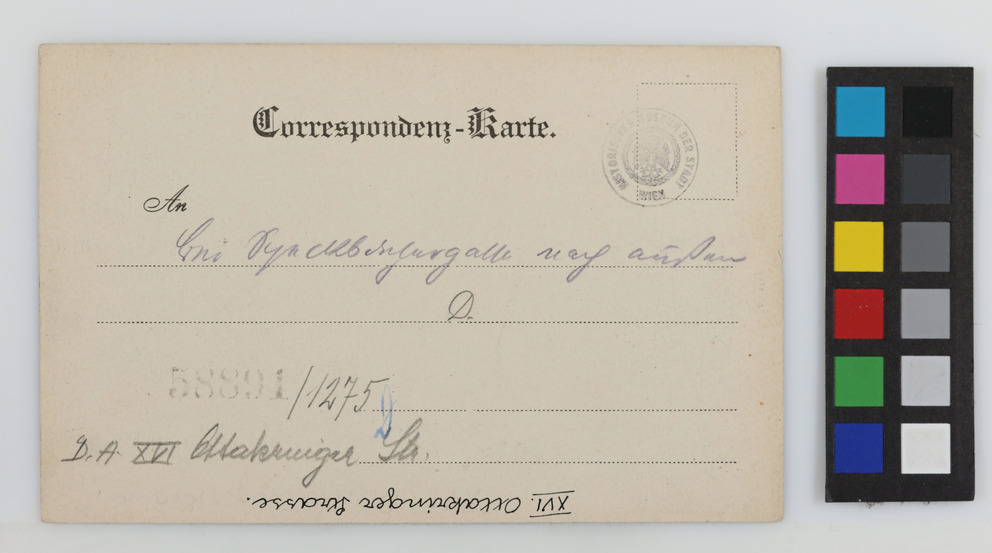 Correspondenz-Karte.
HISTORISCHES MUSEUM DER STADT WIEN
An
bei Speckbachergasse nach außen
D.
58891/1275
D. A. XVI Ottakringer Str.
XVI. Ottakringer Strasse.